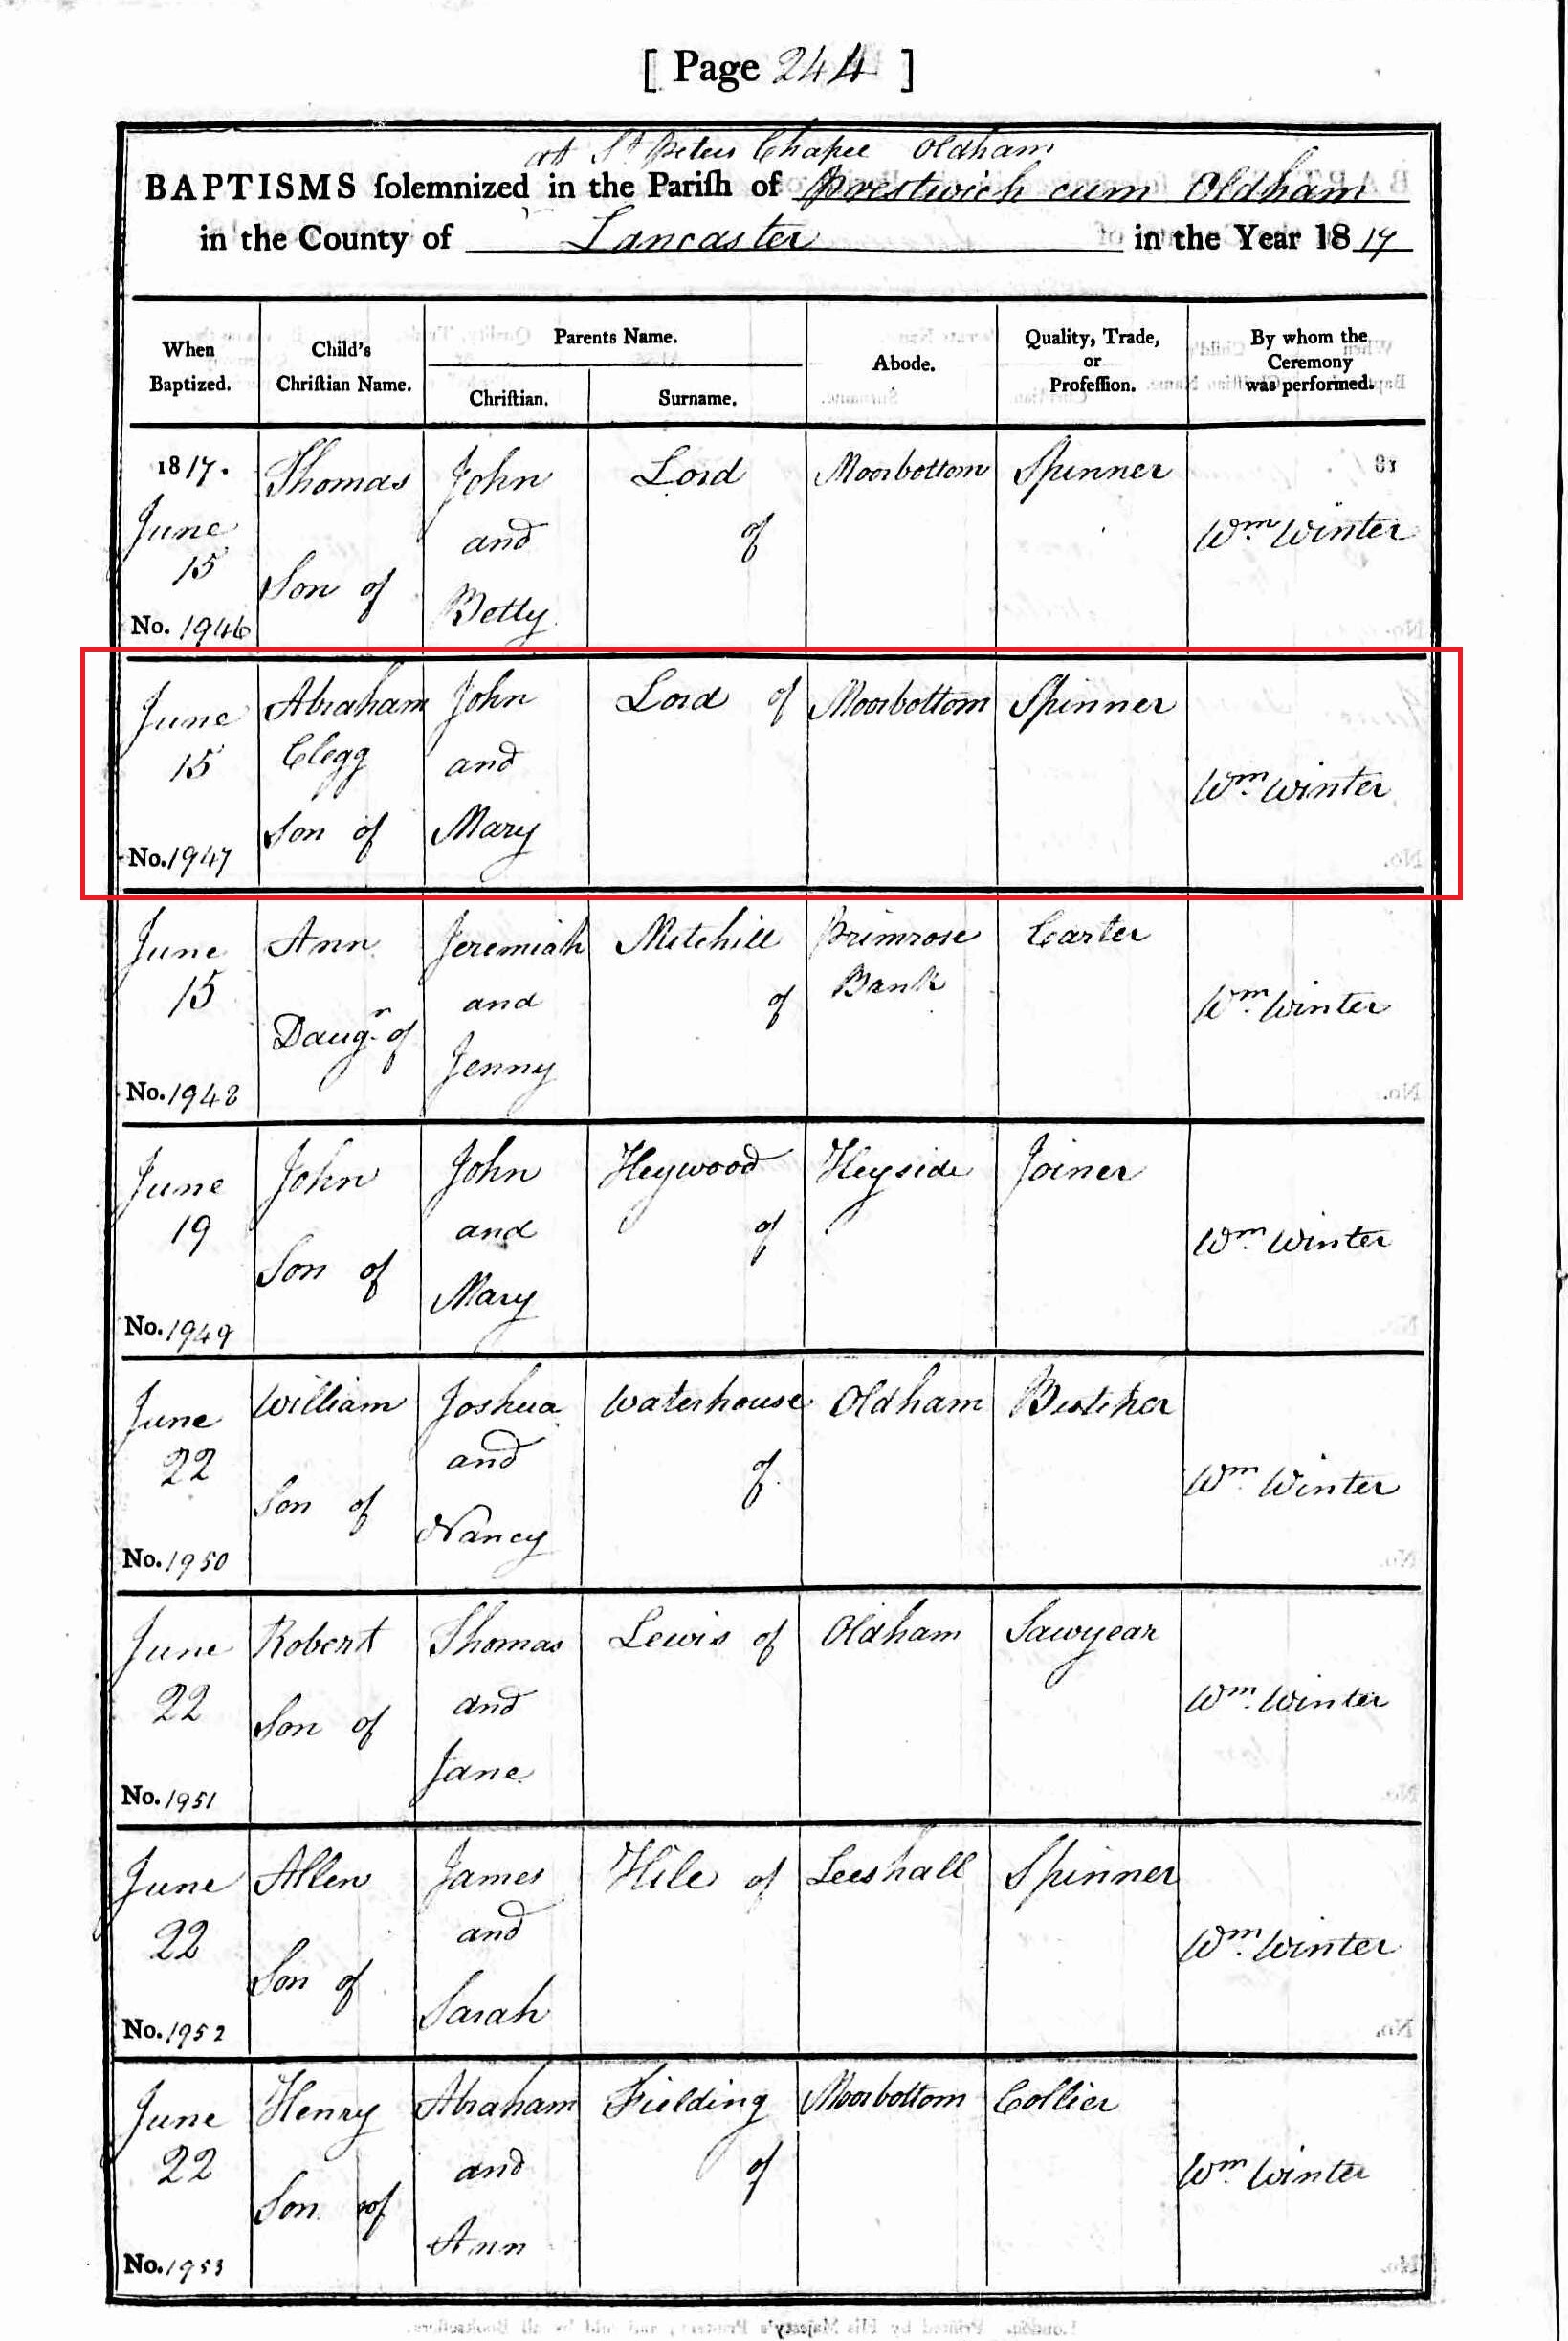 [ Page 244 ]
at St Peters Chapel Oldham
BAPTISMS ſolemnized in the Pariſh of Prestwich cum Oldham
in the County of Lancaster in the Year 18 17
When Baptized. Child's Chriſtian Name. Parents Name. Chriſtian. Surname. Abode. Quality, Trade, or Profeſſion. By whom the Ceremony was performed.
1817. Thomas John Lord Moorbottom Spinner
June and of Wm Winter
15 Son of
No. 1946 Betty
June Abraham John Lord of Moorbottom Spinner
15 Clegg and Wm Winter
Son of Mary
No. 1947
June Ann Jeremiah Mitchill Primrose Carter
15 and of Bank Wm Winter
Daugr of Jenny
No. 1948
June John John Heywood Heyside Joiner
19 and of Wm Winter
Son of Mary
No. 1949
June William Joshua Waterhouse Oldham Butcher
22 and of Wm Winter
Son of Nancy
No. 1950
June Robert Thomas Lewis of Oldham Sawyear
22 Son of and Wm Winter
Jane
No. 1951
June Allen James Hile of Leeshall Spinner
22 and Wm Winter
Son of Sarah
No. 1952
June Henry Abraham Fielding Moorbottom Collier
22 and of Wm Winter
Son of Ann
No. 1953
London. Printed by His Majesty's Printers, and sold by all Booksellers.